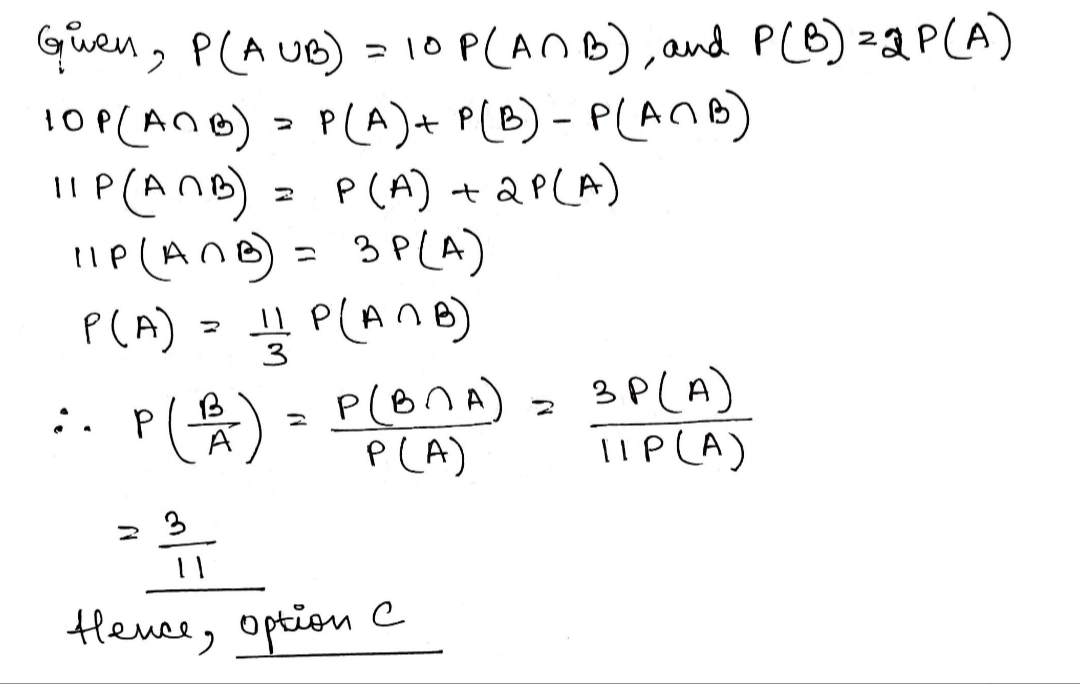 Given, P(A∪B) = 10 P(A∩B), and P(B) = 2P(A)
10 P(A∩B) = P(A) + P(B) - P(A∩B)
11 P(A∩B) = P(A) + 2P(A)
11P(A∩B) = 3P(A)
P(A) = 11/3 P(A∩B)
∴ P(B/A) = P(B∩A)/P(A) = 3P(A)/11P(A)
= 3/11
Hence, option C